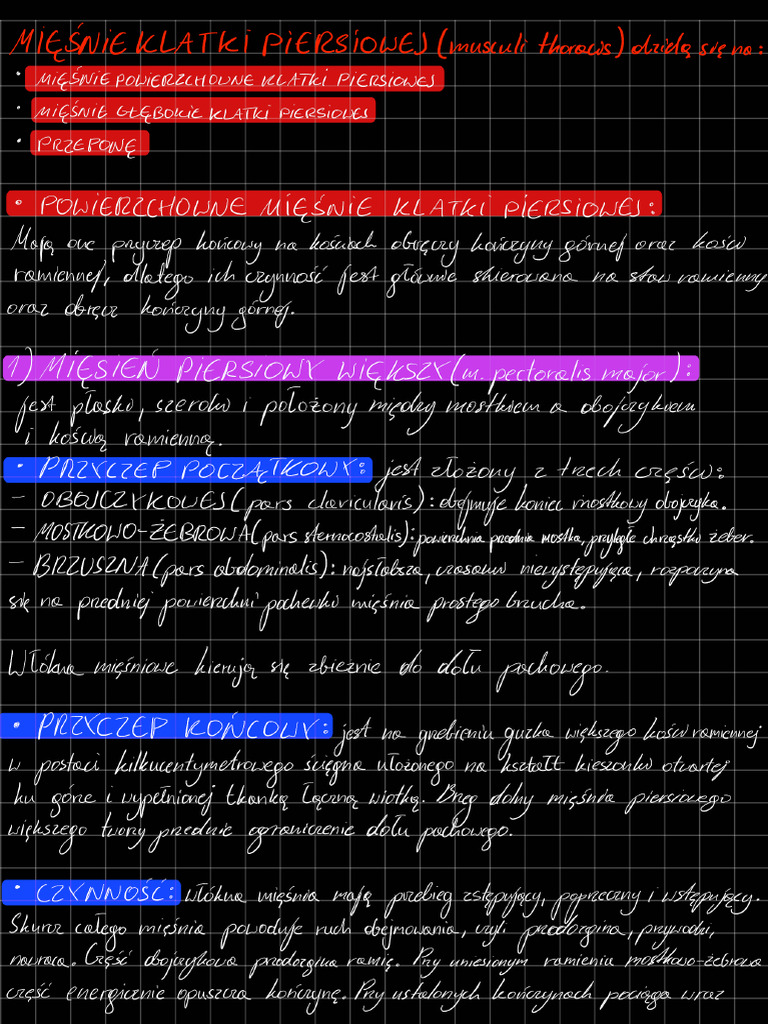 MIĘŚNIE KLATKI PIERSIOWEJ (musculi thoracis) dzielą się na:
• MIĘŚNIE POWIERZCHOWNE KLATKI PIERSIOWEJ
• MIĘŚNIE GŁĘBOKIE KLATKI PIERSIOWEJ
• PRZEPONĘ
• POWIERZCHOWNE MIĘŚNIE KLATKI PIERSIOWEJ:
Mają one przyczep końcowy na kościach obręczy kończyny górnej oraz kości
ramiennej, dlatego ich czynność jest głównie skierowana na staw ramienny
oraz obręcz kończyny górnej.
1) MIĘSIEŃ PIERSIOWY WIĘKSZY (m. pectoralis major):
jest płaski, szeroki i położony między mostkiem a obojczykiem
i kością ramienną.
• PRZYCZEP POCZĄTKOWY: jest złożony z trzech części:
– OBOJCZYKOWEJ (pars clavicularis): obejmuje koniec mostkowy obojczyka.
– MOSTKOWO-ŻEBROWA (pars sternocostalis): powierzchnia przednia mostka, przyległe chrząstki żeber.
– BRZUSZNA (pars abdominalis): najsłabsza, czasami niewystępująca, rozpoczyna
się na przedniej powierzchni pochewki mięśnia prostego brzucha.
Włókna mięśniowe kierują się zbieżnie do dołu pachowego.
• PRZYCZEP KOŃCOWY: jest na grzebieniu guzka większego kości ramiennej
w postaci kilkucentymetrowego ścięgna ułożonego na kształt kieszonki otwartej
ku górze i wypełnionej tkanką łączną wiotką. Brzeg dolny mięśnia piersiowego
większego tworzy przednie ograniczenie dołu pachowego.
• CZYNNOŚĆ: włókna mięśnia mają przebieg zstępujący, poprzeczny i wstępujący.
Skurcz całego mięśnia powoduje ruch obejmowania, czyli przodozgina, przywodzi,
nawraca. Część obojczykowa przodozgina ramię. Przy uniesionym ramieniu mostkowo-żebrowa
część energicznie opuszcza kończynę. Przy ustalonych kończynach pociąga wraz